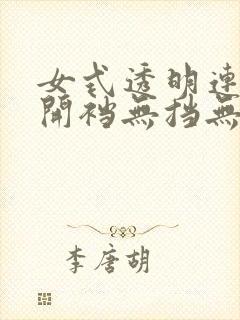 女式透明連
開襠無擋無
李唐胡